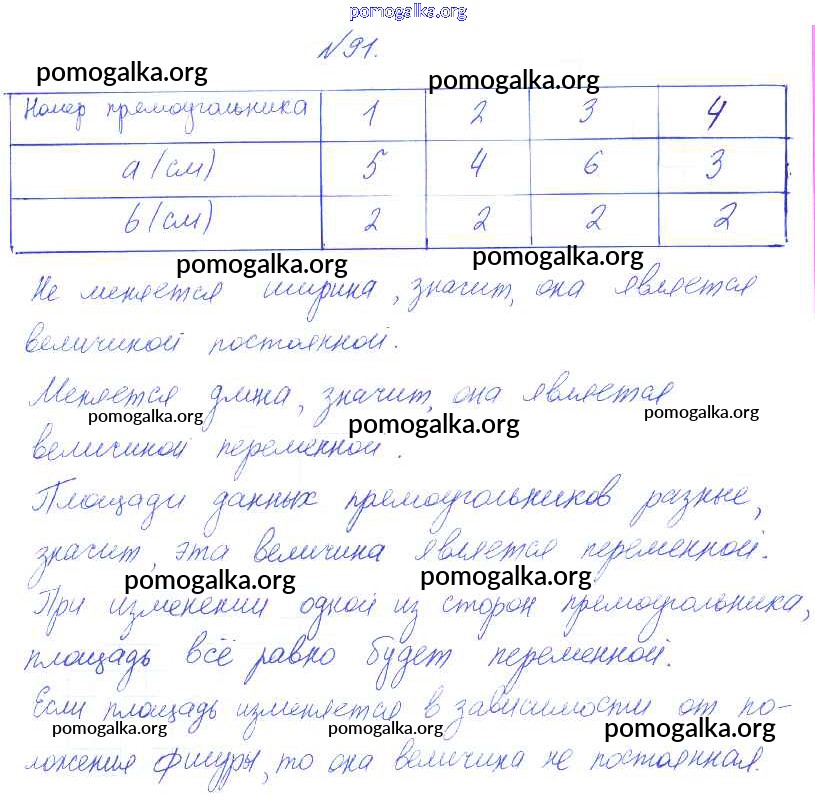 pomogalka.org
№91.
pomogalka.org pomogalka.org
Номер прямоугольника 1 2 3 4
a (см) 5 4 6 3
b (см) 2 2 2 2
pomogalka.org pomogalka.org
Не меняется ширина, значит, она является
величиной постоянной.
Меняется длина, значит, она является
pomogalka.org pomogalka.org pomogalka.org
величиной переменной.
Площади данных прямоугольников разные,
значит, эта величина является переменной.
pomogalka.org pomogalka.org
При изменении одной из сторон прямоугольника,
площадь всё равно будет переменной.
Если площадь изменяется в зависимости от по-
pomogalka.org pomogalka.org pomogalka.org
ложения фигуры, то она величина не постоянная.